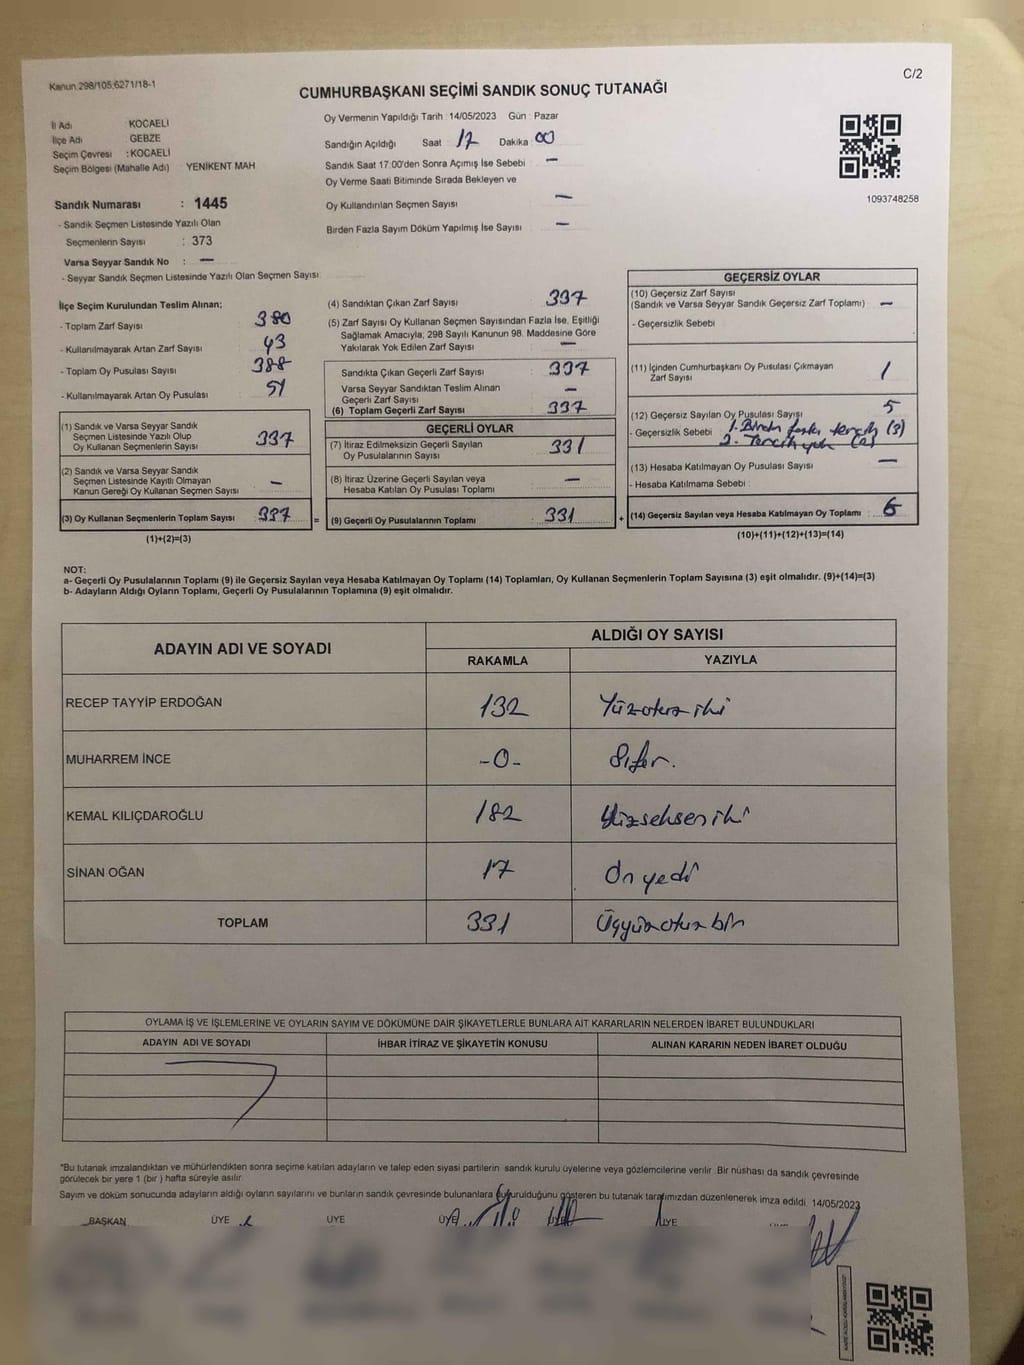 Kanun.298/105;6271/18-1
C/2
CUMHURBAŞKANI SEÇİMİ SANDIK SONUÇ TUTANAĞI
İl Adı KOCAELİ
İlçe Adı GEBZE
Seçim Çevresi : KOCAELİ
Seçim Bölgesi (Mahalle Adı) YENİKENT MAH
Sandık Numarası : 1445
- Sandık Seçmen Listesinde Yazılı Olan
Seçmenlerin Sayısı : 373
Varsa Seyyar Sandık No : —
- Seyyar Sandık Seçmen Listesinde Yazılı Olan Seçmen Sayısı
Oy Vermenin Yapıldığı Tarih : 14/05/2023 Gün : Pazar
Sandığın Açıldığı Saat 17 Dakika 00
Sandık Saat 17:00'den Sonra Açılmış İse Sebebi —
Oy Verme Saati Bitiminde Sırada Bekleyen ve
Oy Kullandırılan Seçmen Sayısı —
Birden Fazla Sayım Döküm Yapılmış İse Sayısı —
1093748258
İlçe Seçim Kurulundan Teslim Alınan:
- Toplam Zarf Sayısı 380
- Kullanılmayarak Artan Zarf Sayısı 43
- Toplam Oy Pusulası Sayısı 388
- Kullanılmayarak Artan Oy Pusulası 51
(1) Sandık ve Varsa Seyyar Sandık
Seçmen Listesinde Yazılı Olup
Oy Kullanan Seçmen Sayısı 337
(2) Sandık ve Varsa Seyyar Sandık
Seçmen Listesinde Kayıtlı Olmayan
Kanun Gereği Oy Kullanan Seçmen Sayısı —
(3) Oy Kullanan Seçmenlerin Toplam Sayısı 337 =
(1)+(2)=(3)
(4) Sandıktan Çıkan Zarf Sayısı 337
(5) Zarf Sayısı Oy Kullanan Seçmen Sayısından Fazla İse, Eşitliği
Sağlamak Amacıyla; 298 Sayılı Kanunun 98. Maddesine Göre
Yakılarak Yok Edilen Zarf Sayısı —
Sandıkta Çıkan Geçerli Zarf Sayısı 337
Varsa Seyyar Sandıktan Teslim Alınan
Geçerli Zarf Sayısı —
(6) Toplam Geçerli Zarf Sayısı 337
GEÇERLİ OYLAR
(7) İtiraz Edilmeksizin Geçerli Sayılan
Oy Pusulalarının Sayısı 331
(8) İtiraz Üzerine Geçerli Sayılan veya
Hesaba Katılan Oy Pusulası Toplamı : —
(9) Geçerli Oy Pusulalarının Toplamı : 331 +
GEÇERSİZ OYLAR
(10) Geçersiz Zarf Sayısı
(Sandık ve Varsa Seyyar Sandık Geçersiz Zarf Toplamı) —
- Geçersizlik Sebebi
(11) İçinden Cumhurbaşkanı Oy Pusulası Çıkmayan
Zarf Sayısı 1
(12) Geçersiz Sayılan Oy Pusulası Sayısı 5
- Geçersizlik Sebebi 1. Birden fazla tercih (3)
2. Tercih yok (2)
(13) Hesaba Katılmayan Oy Pusulası Sayısı —
- Hesaba Katılmama Sebebi :
(14) Geçersiz Sayılan veya Hesaba Katılmayan Oy Toplamı : 6
(10)+(11)+(12)+(13)=(14)
NOT:
a- Geçerli Oy Pusulalarının Toplamı (9) ile Geçersiz Sayılan veya Hesaba Katılmayan Oy Toplamı (14) Toplamları, Oy Kullanan Seçmenlerin Toplam Sayısına (3) eşit olmalıdır. (9)+(14)=(3)
b- Adayların Aldığı Oyların Toplamı, Geçerli Oy Pusulalarının Toplamına (9) eşit olmalıdır.
ADAYIN ADI VE SOYADI ALDIĞI OY SAYISI
RAKAMLA YAZIYLA
RECEP TAYYİP ERDOĞAN 132 Yüzotuz iki
MUHARREM İNCE -0- Sıfır.
KEMAL KILIÇDAROĞLU 182 Yüzseksen iki
SİNAN OĞAN 17 On yedi
TOPLAM 331 Üçyüzotuz bir
OYLAMA İŞ VE İŞLEMLERİNE VE OYLARIN SAYIM VE DÖKÜMÜNE DAİR ŞİKAYETLERLE BUNLARA AİT KARARLARIN NELERDEN İBARET BULUNDUKLARI
ADAYIN ADI VE SOYADI İHBAR İTİRAZ VE ŞİKAYETİN KONUSU ALINAN KARARIN NEDEN İBARET OLDUĞU
*Bu tutanak imzalandıktan ve mühürlendikten sonra seçime katılan adayların ve talep eden siyasi partilerin sandık kurulu üyelerine veya gözlemcilerine verilir. Bir nüshası da sandık çevresinde
görülecek bir yere 1 (bir ) hafta süreyle asılır.
Sayım ve döküm sonucunda adayların aldığı oyların sayılarını ve bunların sandık çevresinde bulunanlara duyurulduğunu gösteren bu tutanak tarafımızdan düzenlenerek imza edildi. 14/05/2023
BAŞKAN ÜYE ÜYE ÜYE ÜYE